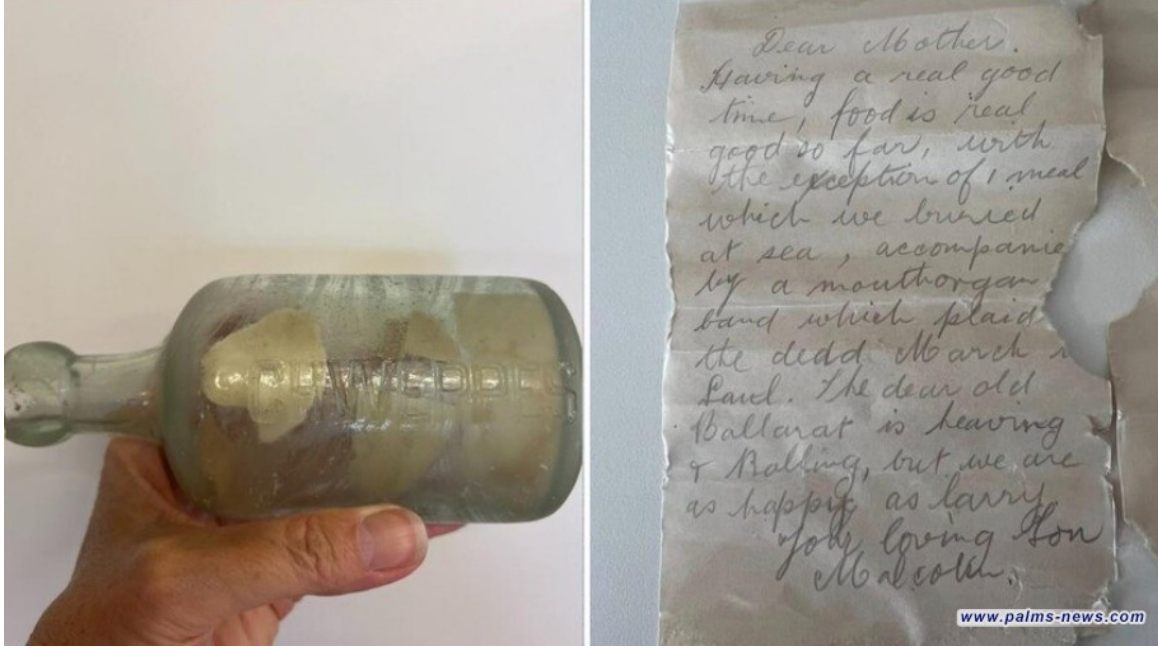 SCHWEPPES
Dear Mother.
Having a real good
time, food is real
good so far, with
the exception of 1 meal
which we buried
at sea, accompanie
by a mouthorgan
band which plaid
the dedd March i
Saul. The dear old
Ballarat is heaving
& Rolling, but we are
as happy as larry
Your loving Son
Malcolm.
www.palms-news.com